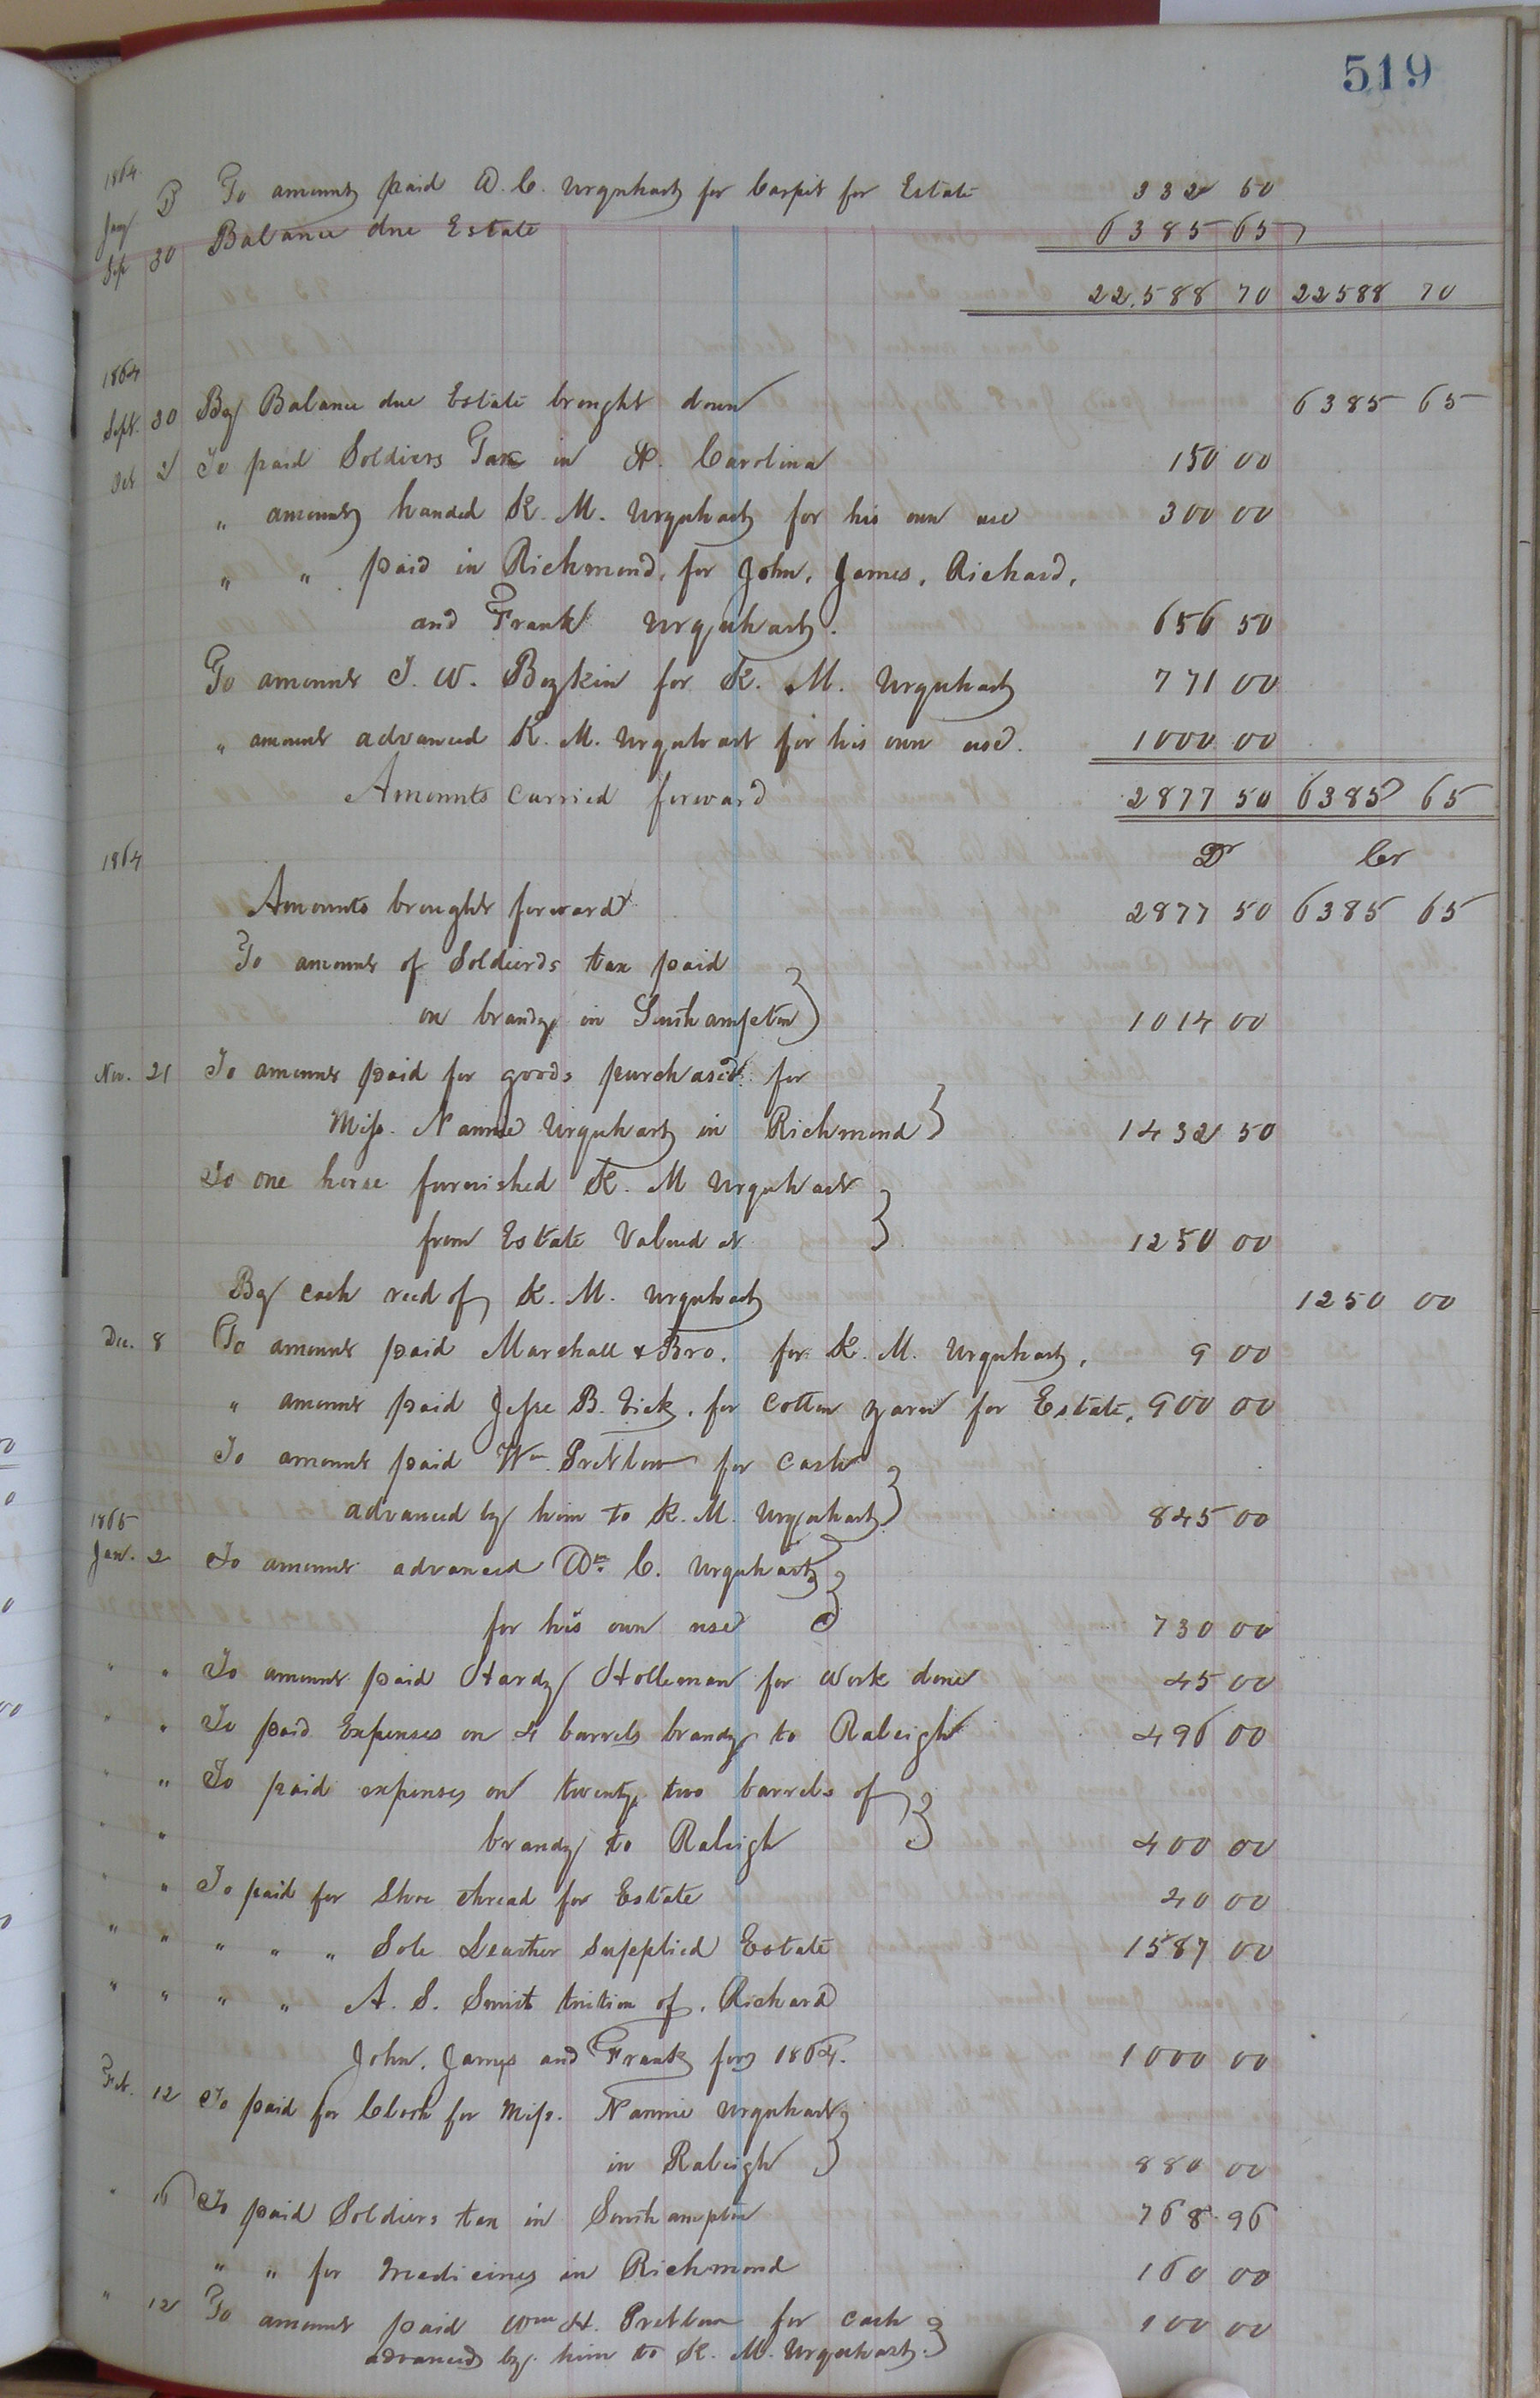 519
1864
Jany To amount paid W. C. Urquhart for Carpet for Estate 332 50
Sep 30 Balance due Estate 6385 65
22,588 70 22588 70
1864
Sept. 30 By Balance due Estate brought down 6385 65
Oct 2 To paid Soldiers Tax in N. Carolina 150 00
" amount handed K. M. Urquhart for his own use 300 00
" " paid in Richmond, for John, James, Richard,
and Frank Urquhart. 656 50
To amount J. W. Boykin for K. M. Urquhart 771 00
" amount advanced K. M. Urquhart for his own use. 1000 00
Amounts carried forward 2877 50 6385 65
1864 Dr Cr
Amounts brought forward 2877 50 6385 65
To amount of Soldiers tax paid
on brandy in Southampton 1014 00
Nov. 21 To amount paid for goods purchased for
Miss. Nannie Urquhart in Richmond 1432 50
To one horse furnished K. M Urquhart
from Estate Valued at 1250 00
By cash recd of K. M. Urquhart 1250 00
Dec. 8 To amount paid Marshall & Bro. for K. M. Urquhart, 9 00
" amount paid Jesse B. Vick, for Cotton yarn for Estate, 900 00
To amount paid Wm. Pretlow for Cash
advanced by him to K. M. Urquhart 845 00
1865
Jan. 2 To amount advanced Wm. C. Urquhart
for his own use 730 00
" " To amount paid Hardy Holleman for Work done 45 00
" " To paid Expenses on 4 barrels brandy to Raleigh 496 00
" " To paid expenses on twenty two barrels of
" " brandy to Raleigh 400 00
" " To paid for Shoe thread for Estate 40 00
" " " " " Sole Leather supplied Estate 1587 00
" " " " A. S. Smith tuition of, Richard
John, James and Frank for 1864. 1000 00
Feb. 12 To paid for Cloak for Miss. Nannie Urquhart
in Raleigh 880 00
" 16 To paid Soldiers tax in Southampton 768.96
" " for Medicines in Richmond 160 00
" 12 To amount paid Wm H. Pretlow for cash 100 00
advanced by him to K. M. Urquhart.